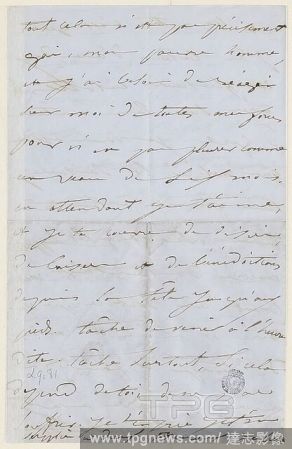 tout cela n'est pas précisément
gai, mon pauvre homme,
et j'ai besoin de réagir
sur moi de toutes mes forces
pour n'en pas pleurer comme
un veau de six mois.
en attendant je t'aime,
et je te couvre de désirs,
de baisers et de bénédictions
depuis la tête jusqu'aux
pieds. tâche de venir à l'heure
dite. tâche surtout, si cela
dépend de toi, de ne pas
souffrir, je t'en prie
29.31
TPG
www.tpgnews.com / 達志影像